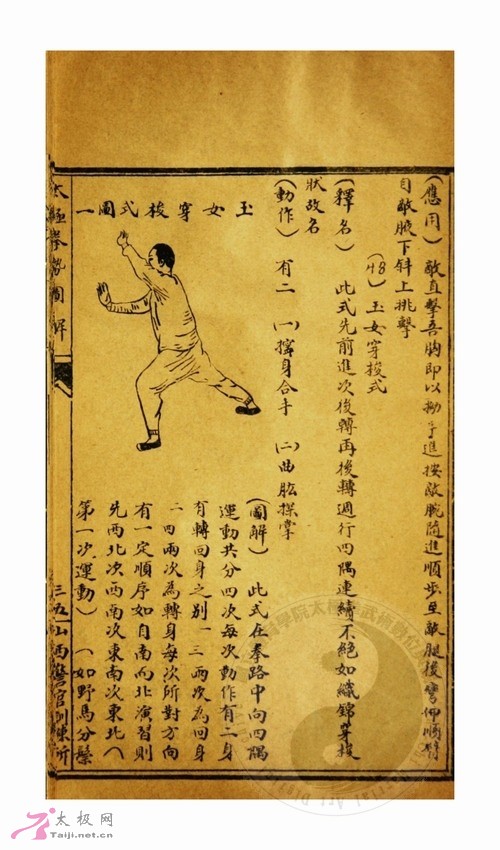 (應用)敵直擊吾胸即以拗手進按敵腕隨進順步至敵腿後彎仰順臂
自敵腋下斜上挑擊
(48)玉女穿梭式
(釋名)此式先前進次後轉再後轉週行四隅連續不絕如織錦穿梭
狀故名
(動作)有二 (一)擰身合手 (二)曲肱探掌
玉女穿梭式圖一
(圖解)此式在拳路中向四隅
運動共分四次每次動作有二身
有轉回身之別一三兩次為回身
二四兩次為轉身每次所對方向
有一定順序如自南而北演習則
先西北次西南次東南次東北(
第一次運動) (如野馬分鬃
太極拳勢圖解
三五 山西警官訓練所
太极网
Taiji.net.cn